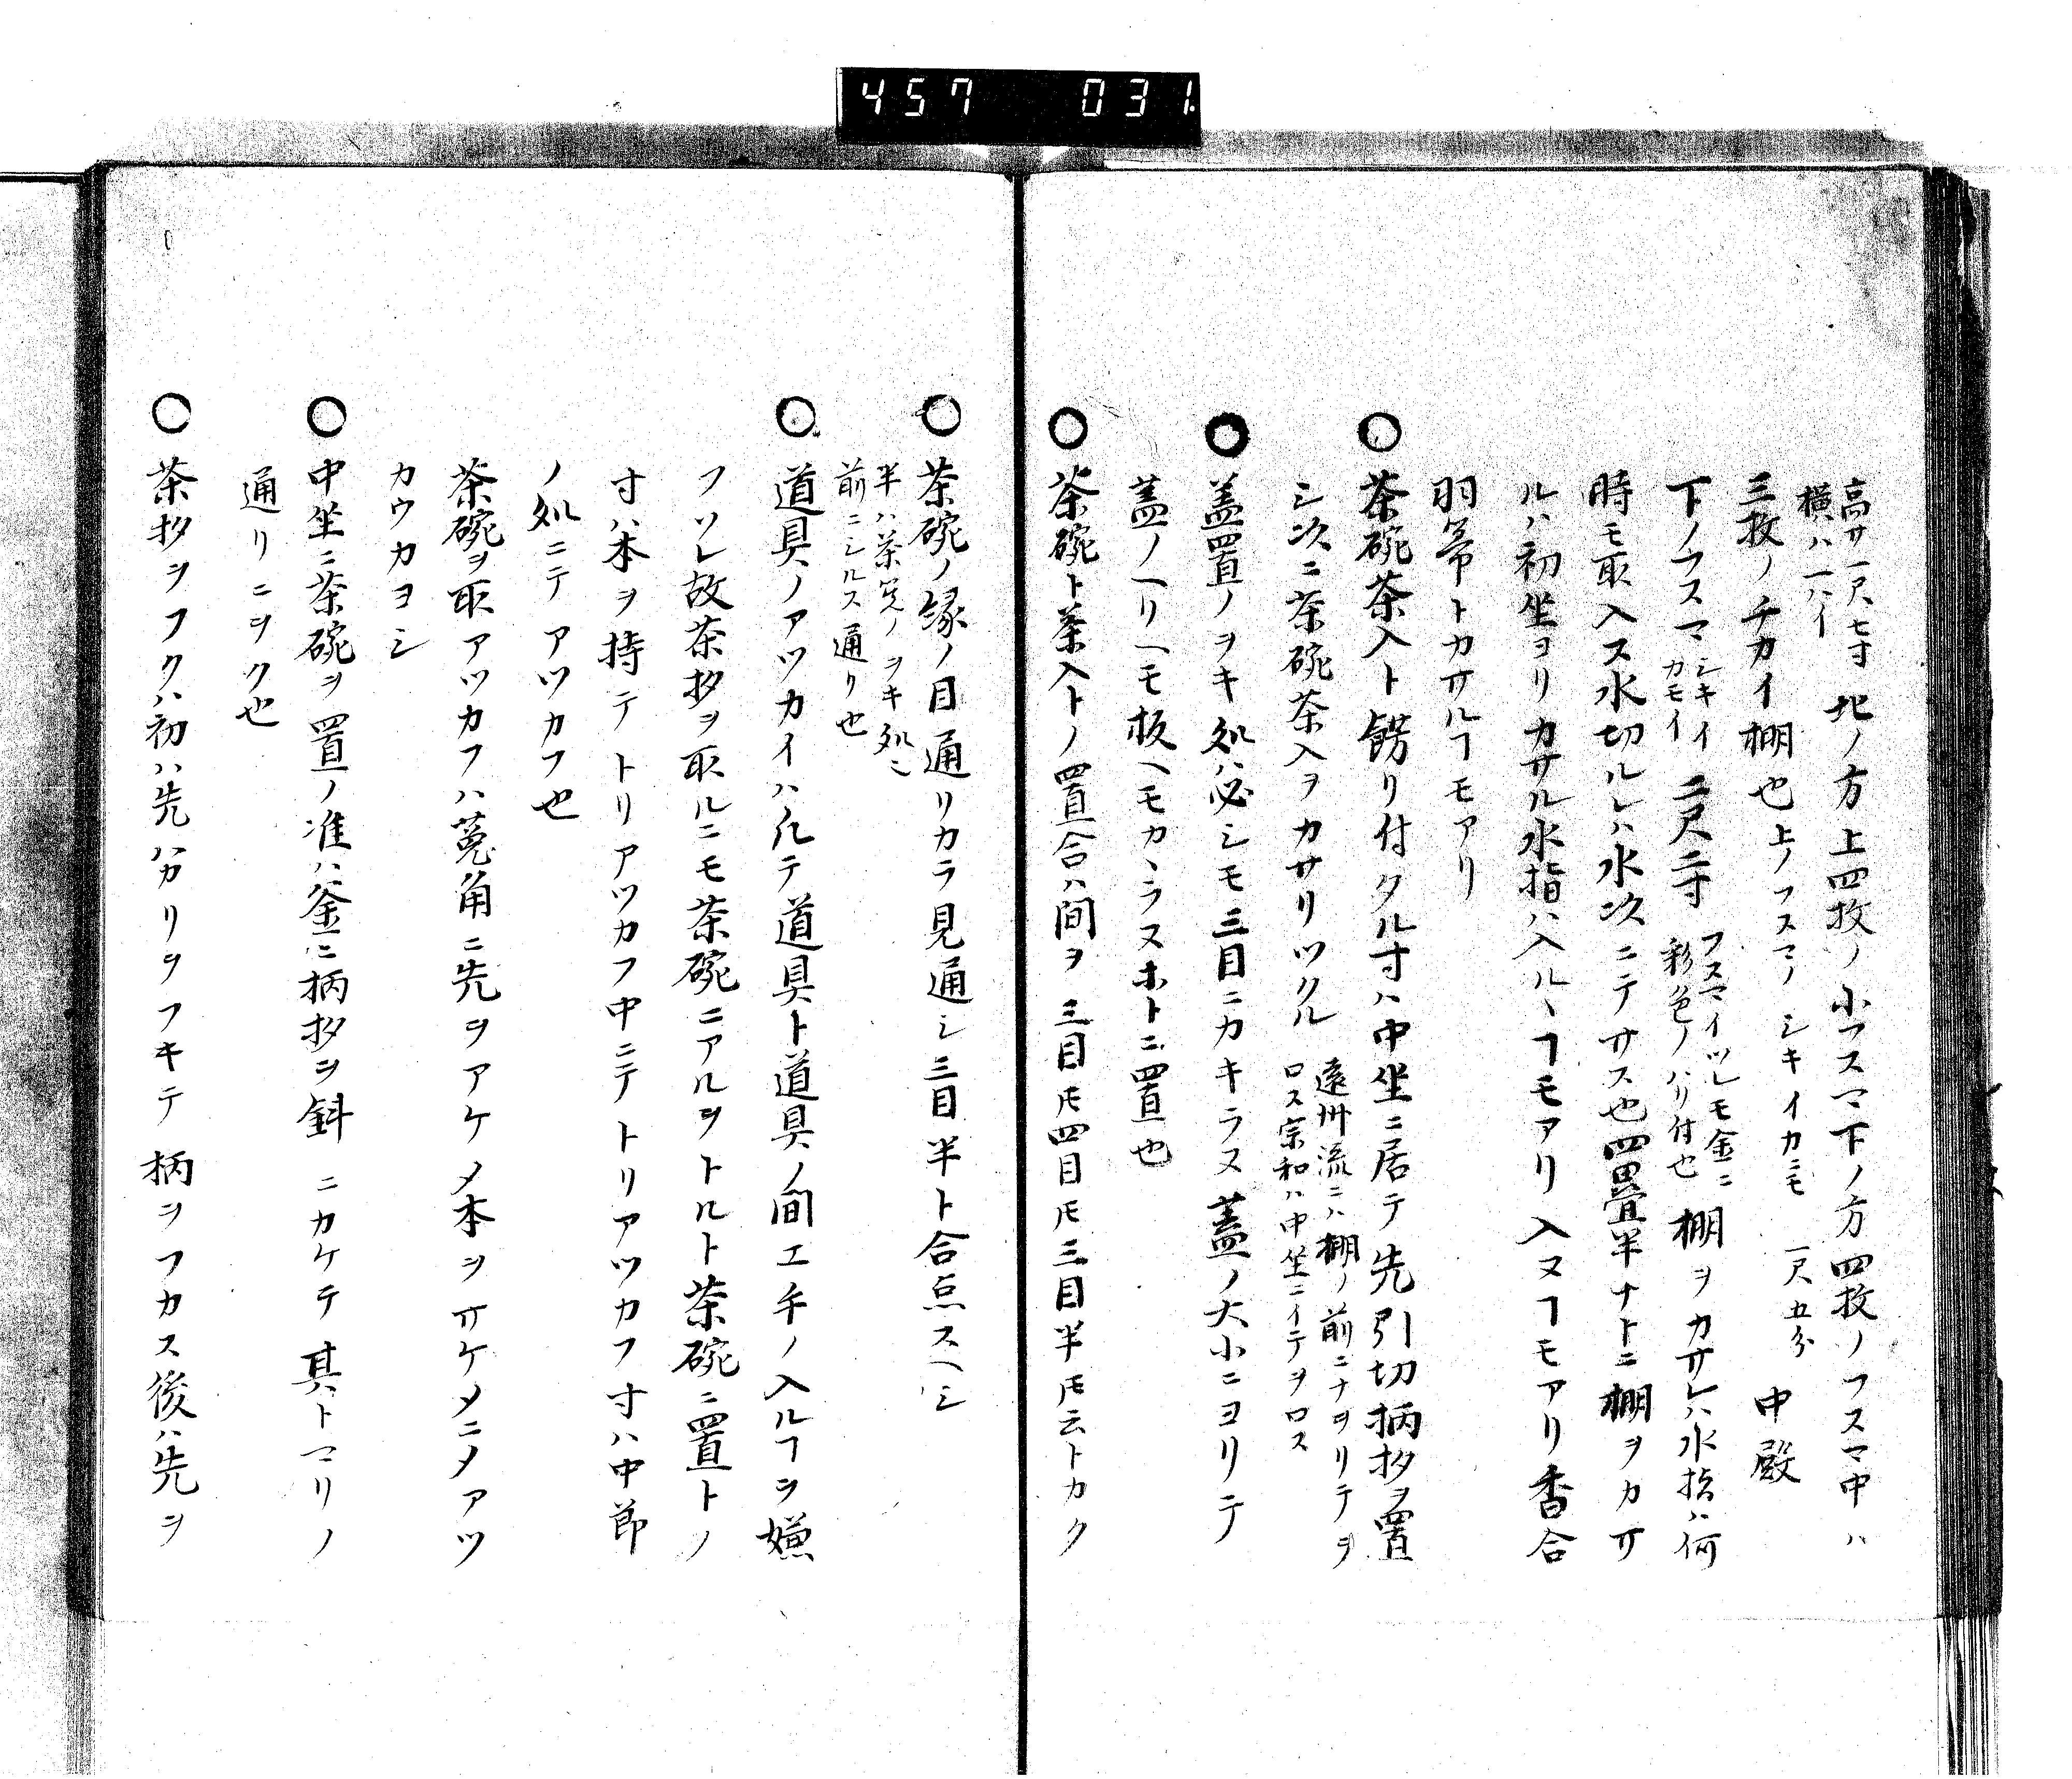 457 031
高サ一尺七寸
横ハ一ハイ
北ノ方上四枚ノ小フスマ下ノ方四枚ノフスマ中ハ
三枚ノチカイ棚也上ノフスマノシキイカモ 一尺五分 中殿
下ノフスマ
シキイ
カモイ
二尺二寸
フスマイツレモ金ニ
彩色ノハリ付也
棚ヲカサレハ水指ハ何
時モ取入ス水切ルレハ水次ニテサス也四畳半ナトニ棚ヲカサ
ルハ初坐ヨリカサル水指ハ入ルヽヿモアリ入ヌヿモアリ香合
羽箒トカサルヿモアリ
○茶碗茶入ト餝リ付タル寸ハ中坐ニ居テ先引切柄杓ヲ置
シ次ニ茶碗茶入ヲカサリツクル
遠州流ニハ棚ノ前ニナヲリテヲ
ロス宗和ハ中坐ニイテヲロス
○蓋置ノヲキ処ハ必シモ三目ニカキラス蓋ノ大小ニヨリテ
蓋ノヘリヘモ板ヘモカヽラスホトニ置也
○茶碗ト茶入トノ置合ハ間ヲ三目𪜈四目𪜈三目半𪜈云トカク
○茶碗ノ縁ノ目通リカラ見通シ三目半ト合点スヘシ
半ハ茶筅ノヲキ処ニ
前ニシルス通リ也
○道具ノアツカイハ凡テ道具ト道具ノ間エ手ノ入ルヿヲ嫌
フソレ故茶杓ヲ取ルニモ茶碗ニアルヲトルト茶碗ニ置トノ
寸ハ本ヲ持テトリアツカフ中ニテトリアツカフ寸ハ中節
ノ処ニテアツカフ也
茶碗ヲ取アツカフハ菟角ニ先ヲアケメ本ヲサケメニメアツ
カウカヨシ
○中坐ニ茶碗ヲ置ノ准ハ釜ニ柄杓ヲ斜ニカケテ其トマリノ
通リニヲク也
○茶杓ヲフクハ初ハ先ハカリヲフキテ柄ヲフカス後ハ先ヲ